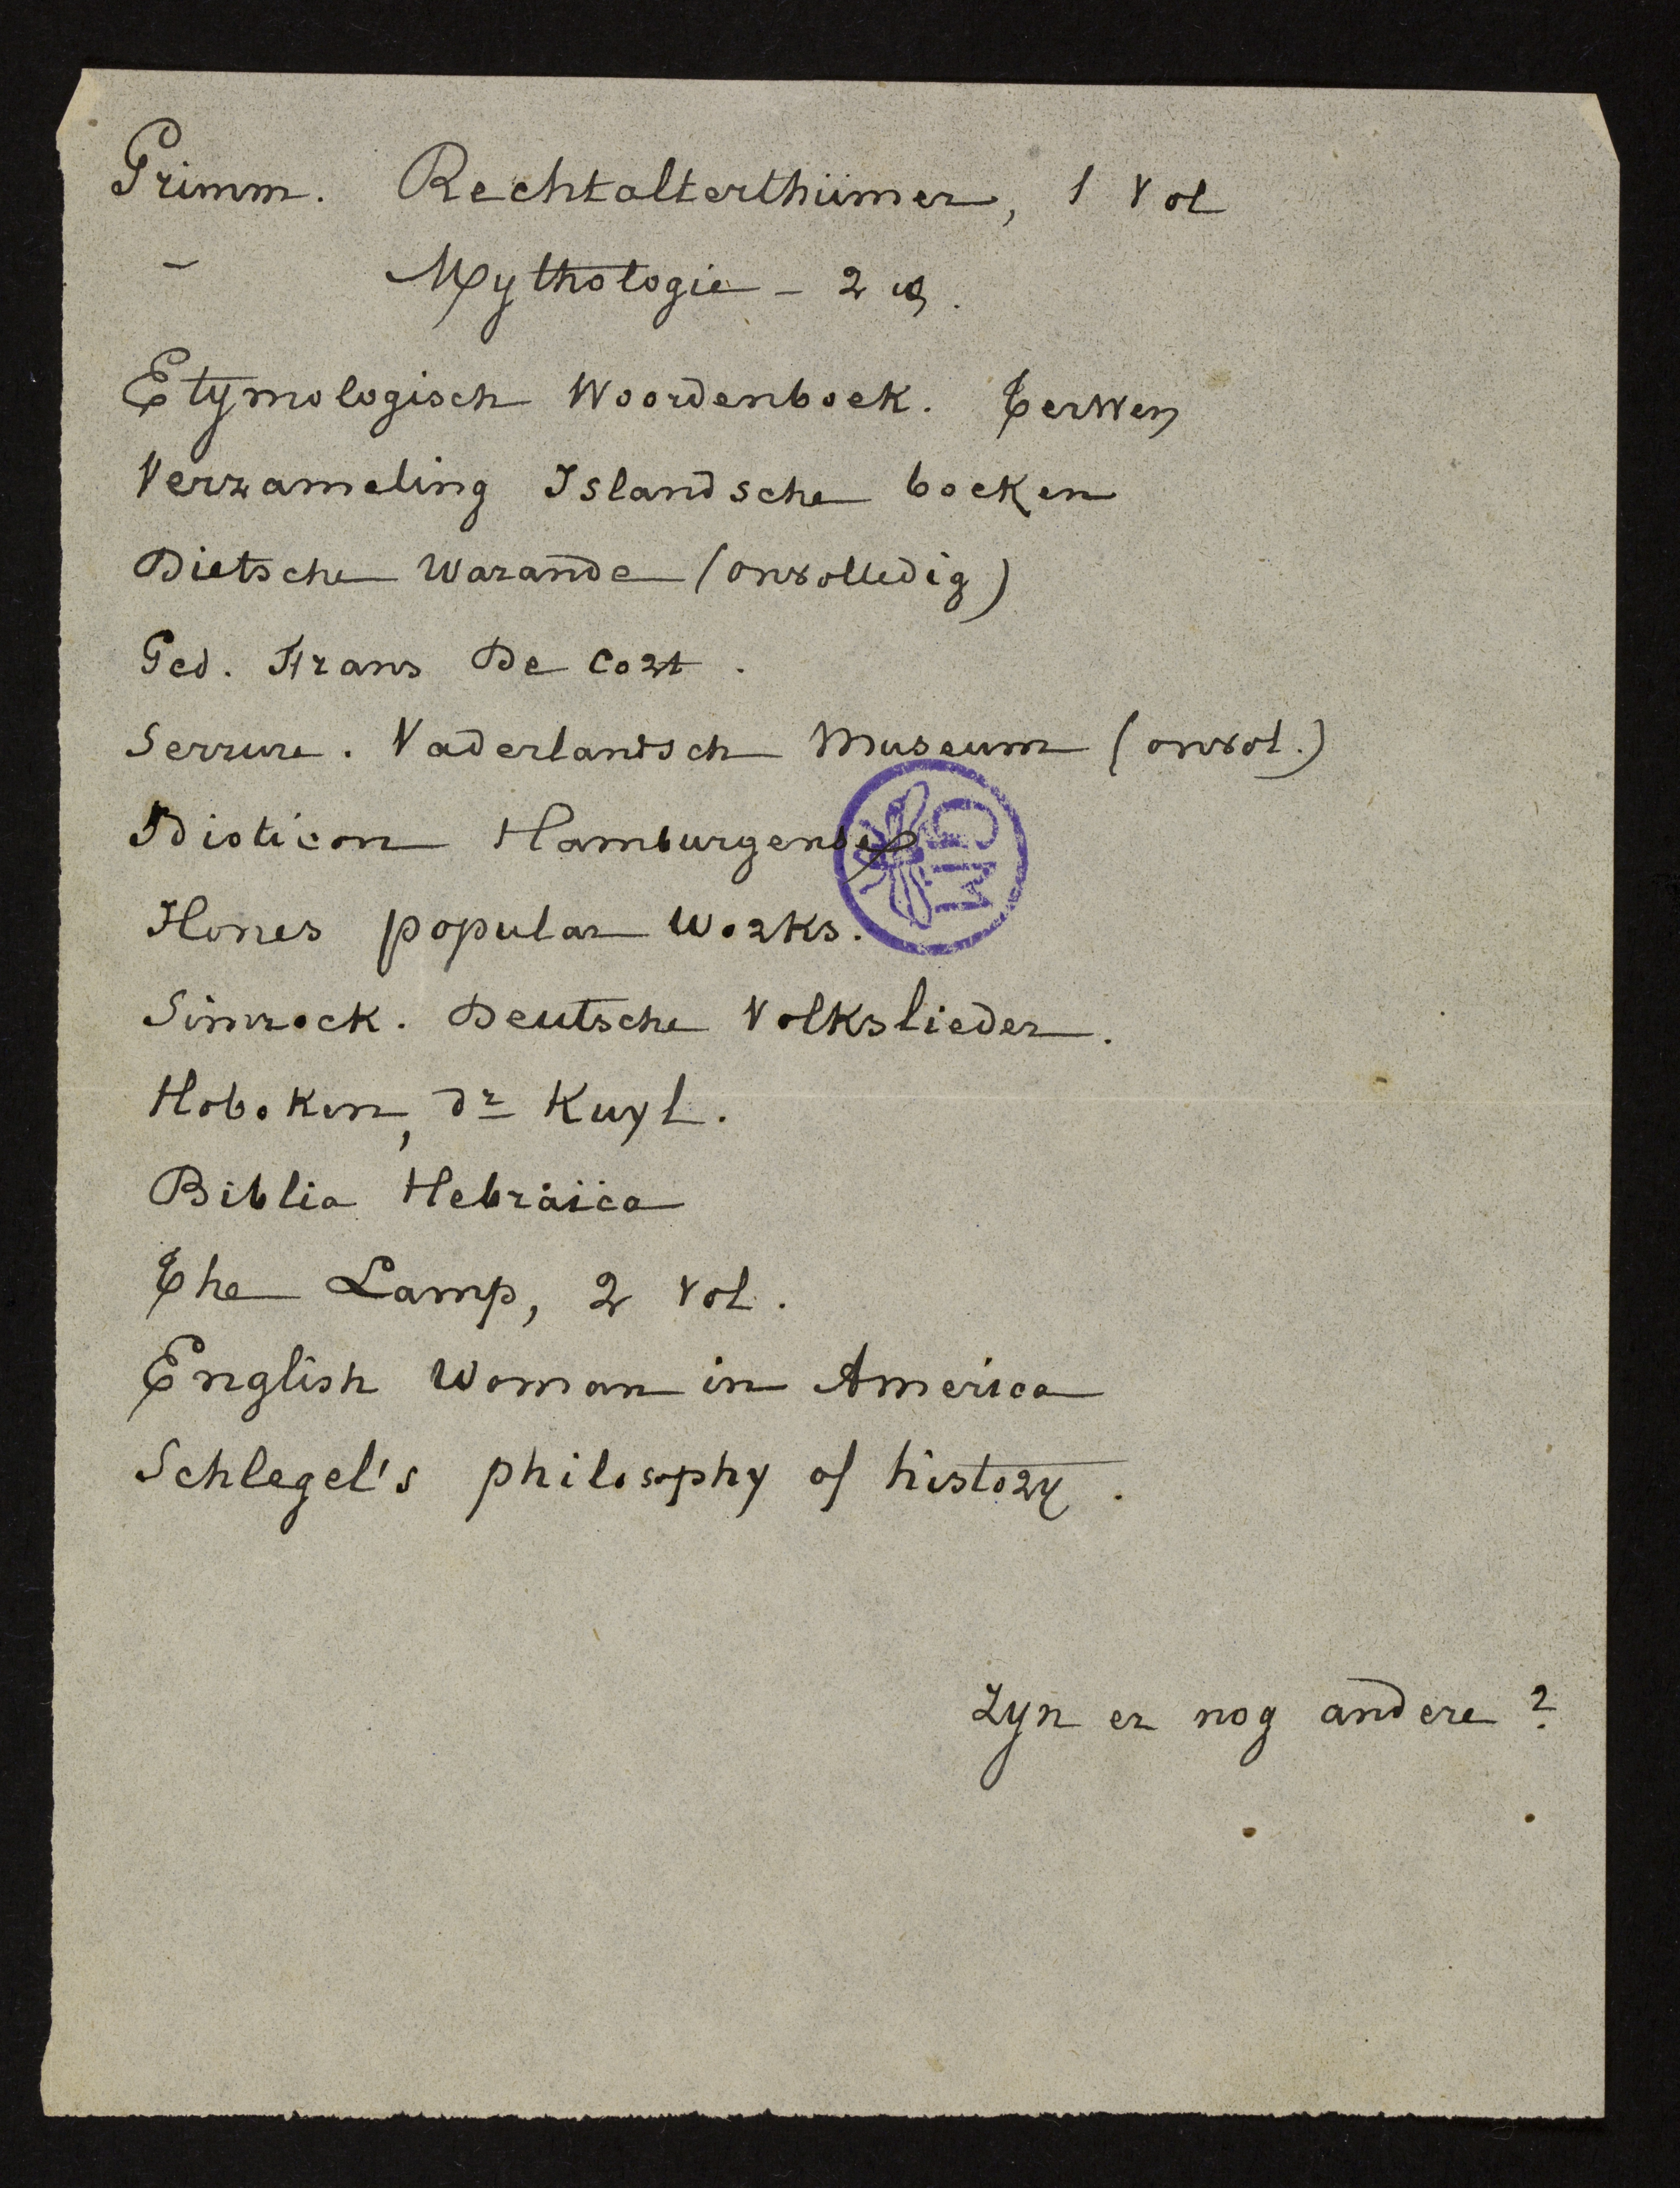 Grimm. Rechtalterthümer, 1 vol
– Mythologie – 2 v.
Etymologisch Woordenboek. Terwen
Verzameling Islandsche boeken
Dietsche Warande (onvolledig)
Ged. Frans De Cort.
Serrure. Vaderlandsch Museum (onvol.)
Idioticon Hamburgense
Hones popular works.
Simrock. Deutsche Volkslieder.
Hoboken, dr Kuyl.
Biblia Hebraïca
The Lamp, 2 vol.
English Woman in America
Schlegel's philosophy of history.
Zyn er nog andere?